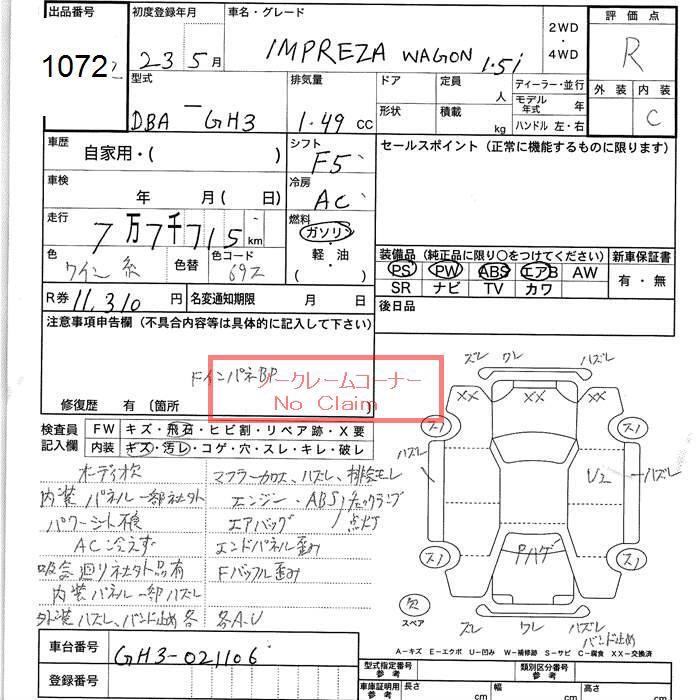 出品番号 初度登録年月 車名・グレード 評価点
1072 23 5月 IMPREZA WAGON 1.5i 2WD・4WD R
型式 排気量 ドア 定員 人 ディーラー・並行 外装 内装
DBA-GH3 1.49 cc 形状 積載 kg モデル年式 年 C
ハンドル 左・右
車歴 自家用・( ) シフト F5 セールスポイント(正常に機能するものに限ります)
車検 年 月( 日) 冷房 AC
走行 7万7千715 km 燃料 ガソリン・軽油
色 ワイン 色替 色コード 69Z ( )
装備品(純正品に限り○をつけてください) 新車保証書
PS PW ABS エアB AW 有・無
SR ナビ TV カワ
R券 11,310 円 名変通知期限 月 日 後日品
注意事項申告欄(不具合内容等は具体的に記入して下さい)
FインパネBP
ノークレームコーナー
No Claim
修復歴 有〔箇所
検査員記入欄 FW キズ・飛石・ヒビ割・リペア跡・X要
内装 キズ・汚レ・コゲ・穴・スレ・キレ・破レ
オーディオ欠 マフラーカロス、ハズレ、排気モレ
内装パネル一部社外 エンジン、ABS、チェックランプ
パワーシート不良 エアバッグ 点灯
AC冷えず エンドパネル歪み
吸気廻り社外品有 Fバッフル歪み
内装パネル一部ハズレ
外装ハズレ、バンド止め各 各A.U
ズレ ワレ ハズレ
XX XX XX
スリ スリ
ハズレ U2 ハズレ
スリ Pハゲ スリ
欠
スペア ズレ ワレ ハズレ
バンド止め
A−キズ E−エクボ U−凹み W−補修跡 S−サビ C−腐食 XX−交換済
車台番号 GH3-021106
登録番号
型式指定番号 参考 類別区分番号 参考
車庫証明用 参考 長さ cm 幅 cm 高さ cm